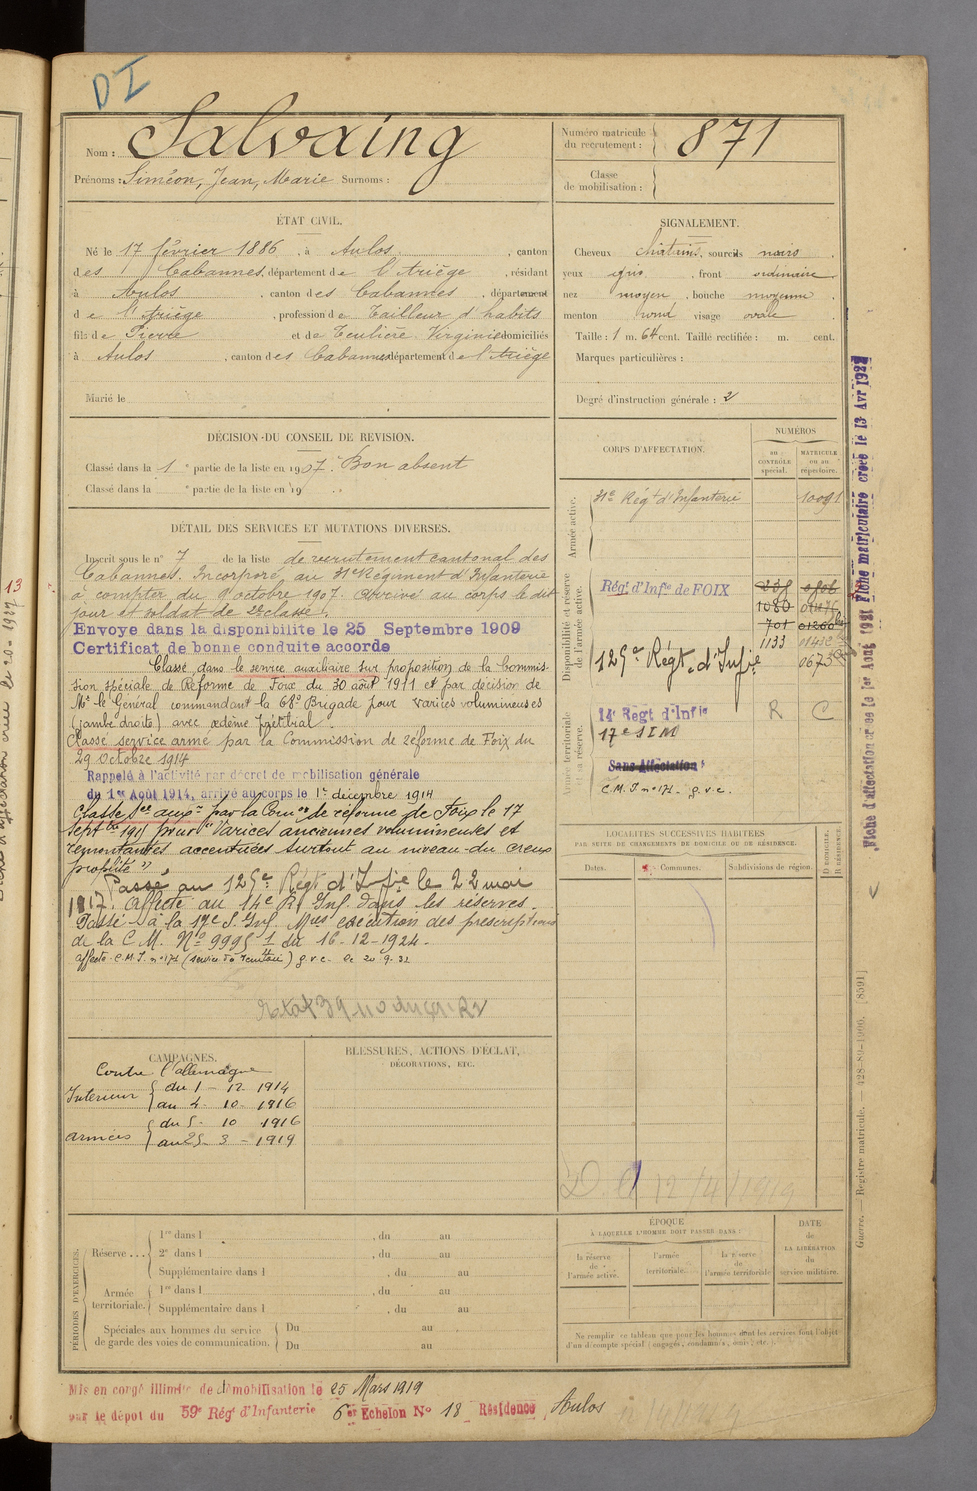 DI
Nom : Salvaing
Prénoms : Siméon, Jean, Marie Surnoms :
Numéro matricule du recrutement : 871
Classe de mobilisation :
ÉTAT CIVIL.
Né le 17 février 1886, à Aulos, canton
des Cabannes, département de l'Ariège, résidant
à Aulos, canton des Cabannes, département
de l'Ariège, profession de tailleur d'habits
fils de Pierre et de Teulière Virginie domiciliés
à Aulos, canton des Cabannes département de l'Ariège
Marié le
SIGNALEMENT.
Cheveux châtains, sourcils noirs
yeux gris, front ordinaire
nez moyen, bouche moyenne
menton rond visage ovale
Taille : 1 m. 64 cent. Taille rectifiée : m. cent.
Marques particulières :
Degré d'instruction générale : 2
DÉCISION DU CONSEIL DE REVISION.
Classé dans la 1e partie de la liste en 1907. Bon absent
Classé dans la e partie de la liste en 19
DÉTAIL DES SERVICES ET MUTATIONS DIVERSES.
Inscrit sous le n° 7 de la liste de recrutement cantonal des
Cabannes. Incorporé au 31e Régiment d'Infanterie
à compter du 9 octobre 1907. Arrivé au corps le dit
jour et soldat de 2e classe.
Envoye dans la disponibilite le 25 Septembre 1909
Certificat de bonne conduite accorde
Classé dans le service auxiliaire sur proposition de la Commis-
sion spéciale de Réforme de Foix du 30 août 1911 et par décision de
Mr le Général commandant la 68e Brigade pour varices volumineuses
(jambe droite) avec œdème prétibial.
Classé service armé par la Commission de réforme de Foix du
29 Octobre 1914
Rappelé à l'activité par décret de mobilisation générale
du 1er Août 1914, arrivé au corps le 1er décembre 1914
Classé Sce auxre par la Comon de réforme de Foix le 17
Septbre 1915 pour "Varices anciennes volumineuses et
remontantes accentuées surtout au niveau du creux
poplité"
Passé au 125e Régt d'Infie le 22 mai
1917. Affecté au 14e R. Inf. dans les réserves.
Passé à la 17e S. Inf. Mres exécution des prescriptions
de la C.M. N° 9995 1 du 16-12-1924.
affecté C.M.I. n° 171 (service du territoire) g.v.c. le 20.9.32
CORPS D'AFFECTATION.
NUMÉROS
AU CONTRÔLE spécial.
MATRICULE ou au répertoire.
Armée active.
31e Régt d'Infanterie 10091
Disponibilité et réserve de l'armée active.
Régt d'Infie de FOIX
1080
701
1133 01432
125e Régt d'Infie 0673
Armée territoriale et sa réserve.
14e Regt d'Infie R C
17e SIM
Sans Affectation
C.M.I n° 171. g.v.c.
LOCALITÉS SUCCESSIVES HABITÉES
PAR SUITE DE CHANGEMENTS DE DOMICILE OU DE RÉSIDENCE.
Dates. Communes. Subdivisions de région. D DOMICILE. R RÉSIDENCE.
D. 12/4/1919
CAMPAGNES.
Contre l'allemagne
Intérieur du 1 - 12 1914
au 4 - 10 - 1916
armées du 5 - 10 1916
au 25 - 3 - 1919
BLESSURES, ACTIONS D'ÉCLAT,
DÉCORATIONS, ETC.
PÉRIODES D'EXERCICES.
Réserve ... 1re dans l , du au
2e dans l , du au
Supplémentaire dans l , du au
Armée territoriale. 1re dans l , du au
Supplémentaire dans l , du au
Spéciales aux hommes du service de garde des voies de communication. Du au
Du au
ÉPOQUE
À LAQUELLE L'HOMME DOIT PASSER DANS :
la réserve de l'armée active.
l'armée territoriale.
la réserve de l'armée territoriale
DATE de LA LIBÉRATION du service militaire.
Ne remplir ce tableau que pour les hommes dont les services font l'objet
d'un décompte spécial (engagés, condamnés, omis, etc.
Mis en congé illimité de démobilisation le 25 Mars 1919
par le dépôt du 59e Régt d'Infanterie 6e Echelon N° 18 Résidence Aulos
Fiche d'affectation créée le 1er Aout 1921 Fiche matriculaire créée le 13 Avr 1927
Guerre. — Registre matricule. — 428-89-1906. [8591]